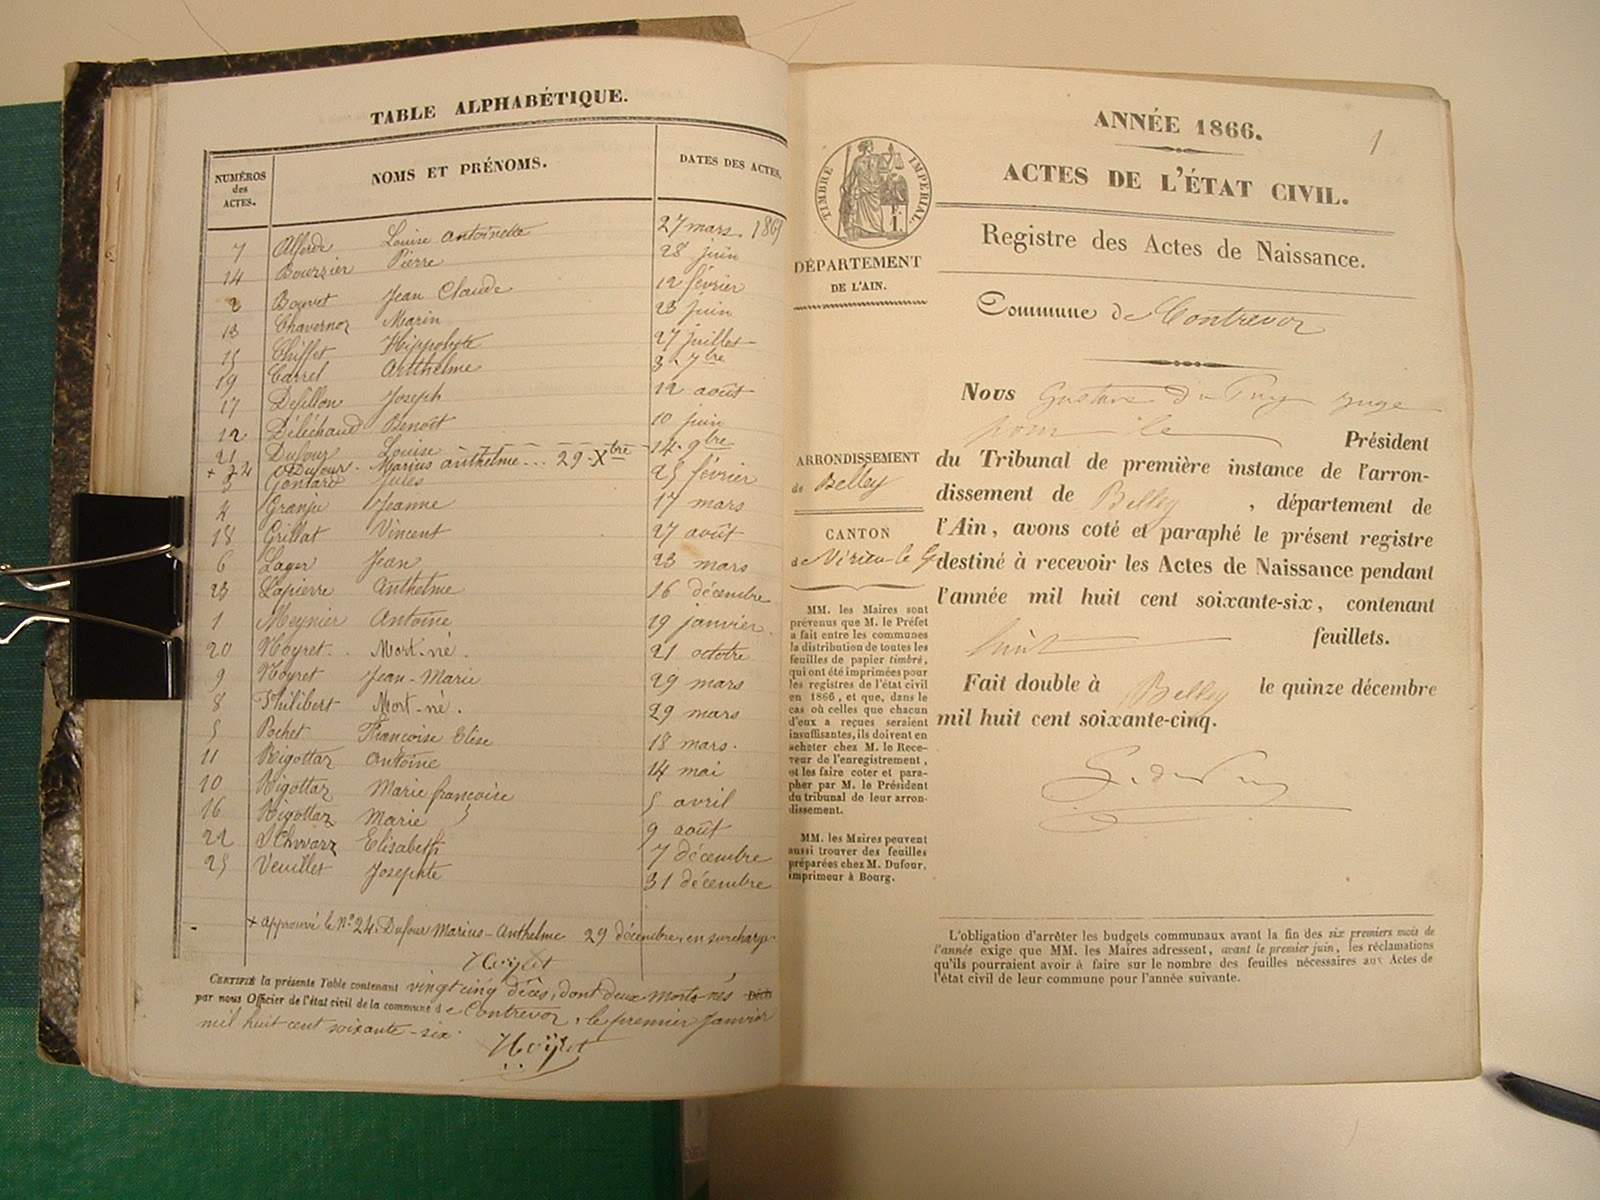 TABLE ALPHABÉTIQUE.
NUMÉROS des ACTES. NOMS ET PRÉNOMS. DATES DES ACTES.
7 Louise Antoinette 27 mars 1865
14 Bourrier Pierre 28 juin
2 Bouvet Jean Claude 12 février
13 Chavernoz Marin 23 juin
15 Chiffet Hippolyte 27 juillet
19 Carrel Anthelme 3 7bre
17 Defillon Joseph 12 août
12 Déléchaud Benoît 10 juin
21 Dufour Louise 14 9bre
+ 24 Dufour Marius anthelme... 29 Xbre
3 Gontard Jules 25 février
4 Granju Jeanne 17 mars
18 Grillat Vincent 27 août
6 Lager Jean 23 mars
23 Lapierre Anthelme 16 décembre
1 Meynier Antoine 19 janvier
20 Noyret Mort-né. 21 octobre
9 Noyret Jean-Marie 29 mars
8 Philibert Mort-né. 29 mars
5 Pochet Françoise Elise 18 mars.
11 Rigottaz Antoine 14 mai
10 Rigottaz Marie françoise 5 avril
16 Rigottaz Marie 9 août
22 SChwarz Elisabeth 7 décembre
25 Veuillet Josephte 31 décembre
+ approuvé le N° 24. Dufour Marius-Anthelme 29 décembre, en surcharge.
Noyret
CERTIFIÉ la présente Table contenant vingt cinq décès, dont deux morts nés
par nous Officier de l'état civil de la commune de Contrevoz, le premier Janvier
mil huit cent soixante-six.
Noyret
TIMBRE IMPERIAL
DÉPARTEMENT
DE L'AIN.
ARRONDISSEMENT
de Belley
CANTON
de Virieu-le-G
MM. les Maires sont
prévenus que M. le Préfet
a fait entre les communes
la distribution de toutes les
feuilles de papier timbré,
qui ont été imprimées pour
les registres de l'état civil
en 1866, et que, dans le
cas où celles que chacun
d'eux a reçues seraient
insuffisantes, ils doivent en
acheter chez M. le Rece-
veur de l'enregistrement,
et les faire coter et para-
pher par M. le Président
du tribunal de leur arron-
dissement.
MM. les Maires peuvent
aussi trouver des feuilles
préparées chez M. Dufour,
imprimeur à Bourg.
1
ANNÉE 1866.
ACTES DE L'ÉTAT CIVIL.
Registre des Actes de Naissance.
Commune de Contrevoz
Nous Gustave Du Puy juge
pour le Président
du Tribunal de première instance de l'arron-
dissement de Belley, département de
l'Ain, avons coté et paraphé le présent registre
destiné à recevoir les Actes de Naissance pendant
l'année mil huit cent soixante-six, contenant
huit feuillets.
Fait double à Belley le quinze décembre
mil huit cent soixante-cinq.
G. du Puy
L'obligation d'arrêter les budgets communaux avant la fin des six premiers mois de
l'année exige que MM. les Maires adressent, avant le premier juin, les réclamations
qu'ils pourraient avoir à faire sur le nombre des feuilles nécessaires aux Actes de
l'état civil de leur commune pour l'année suivante.